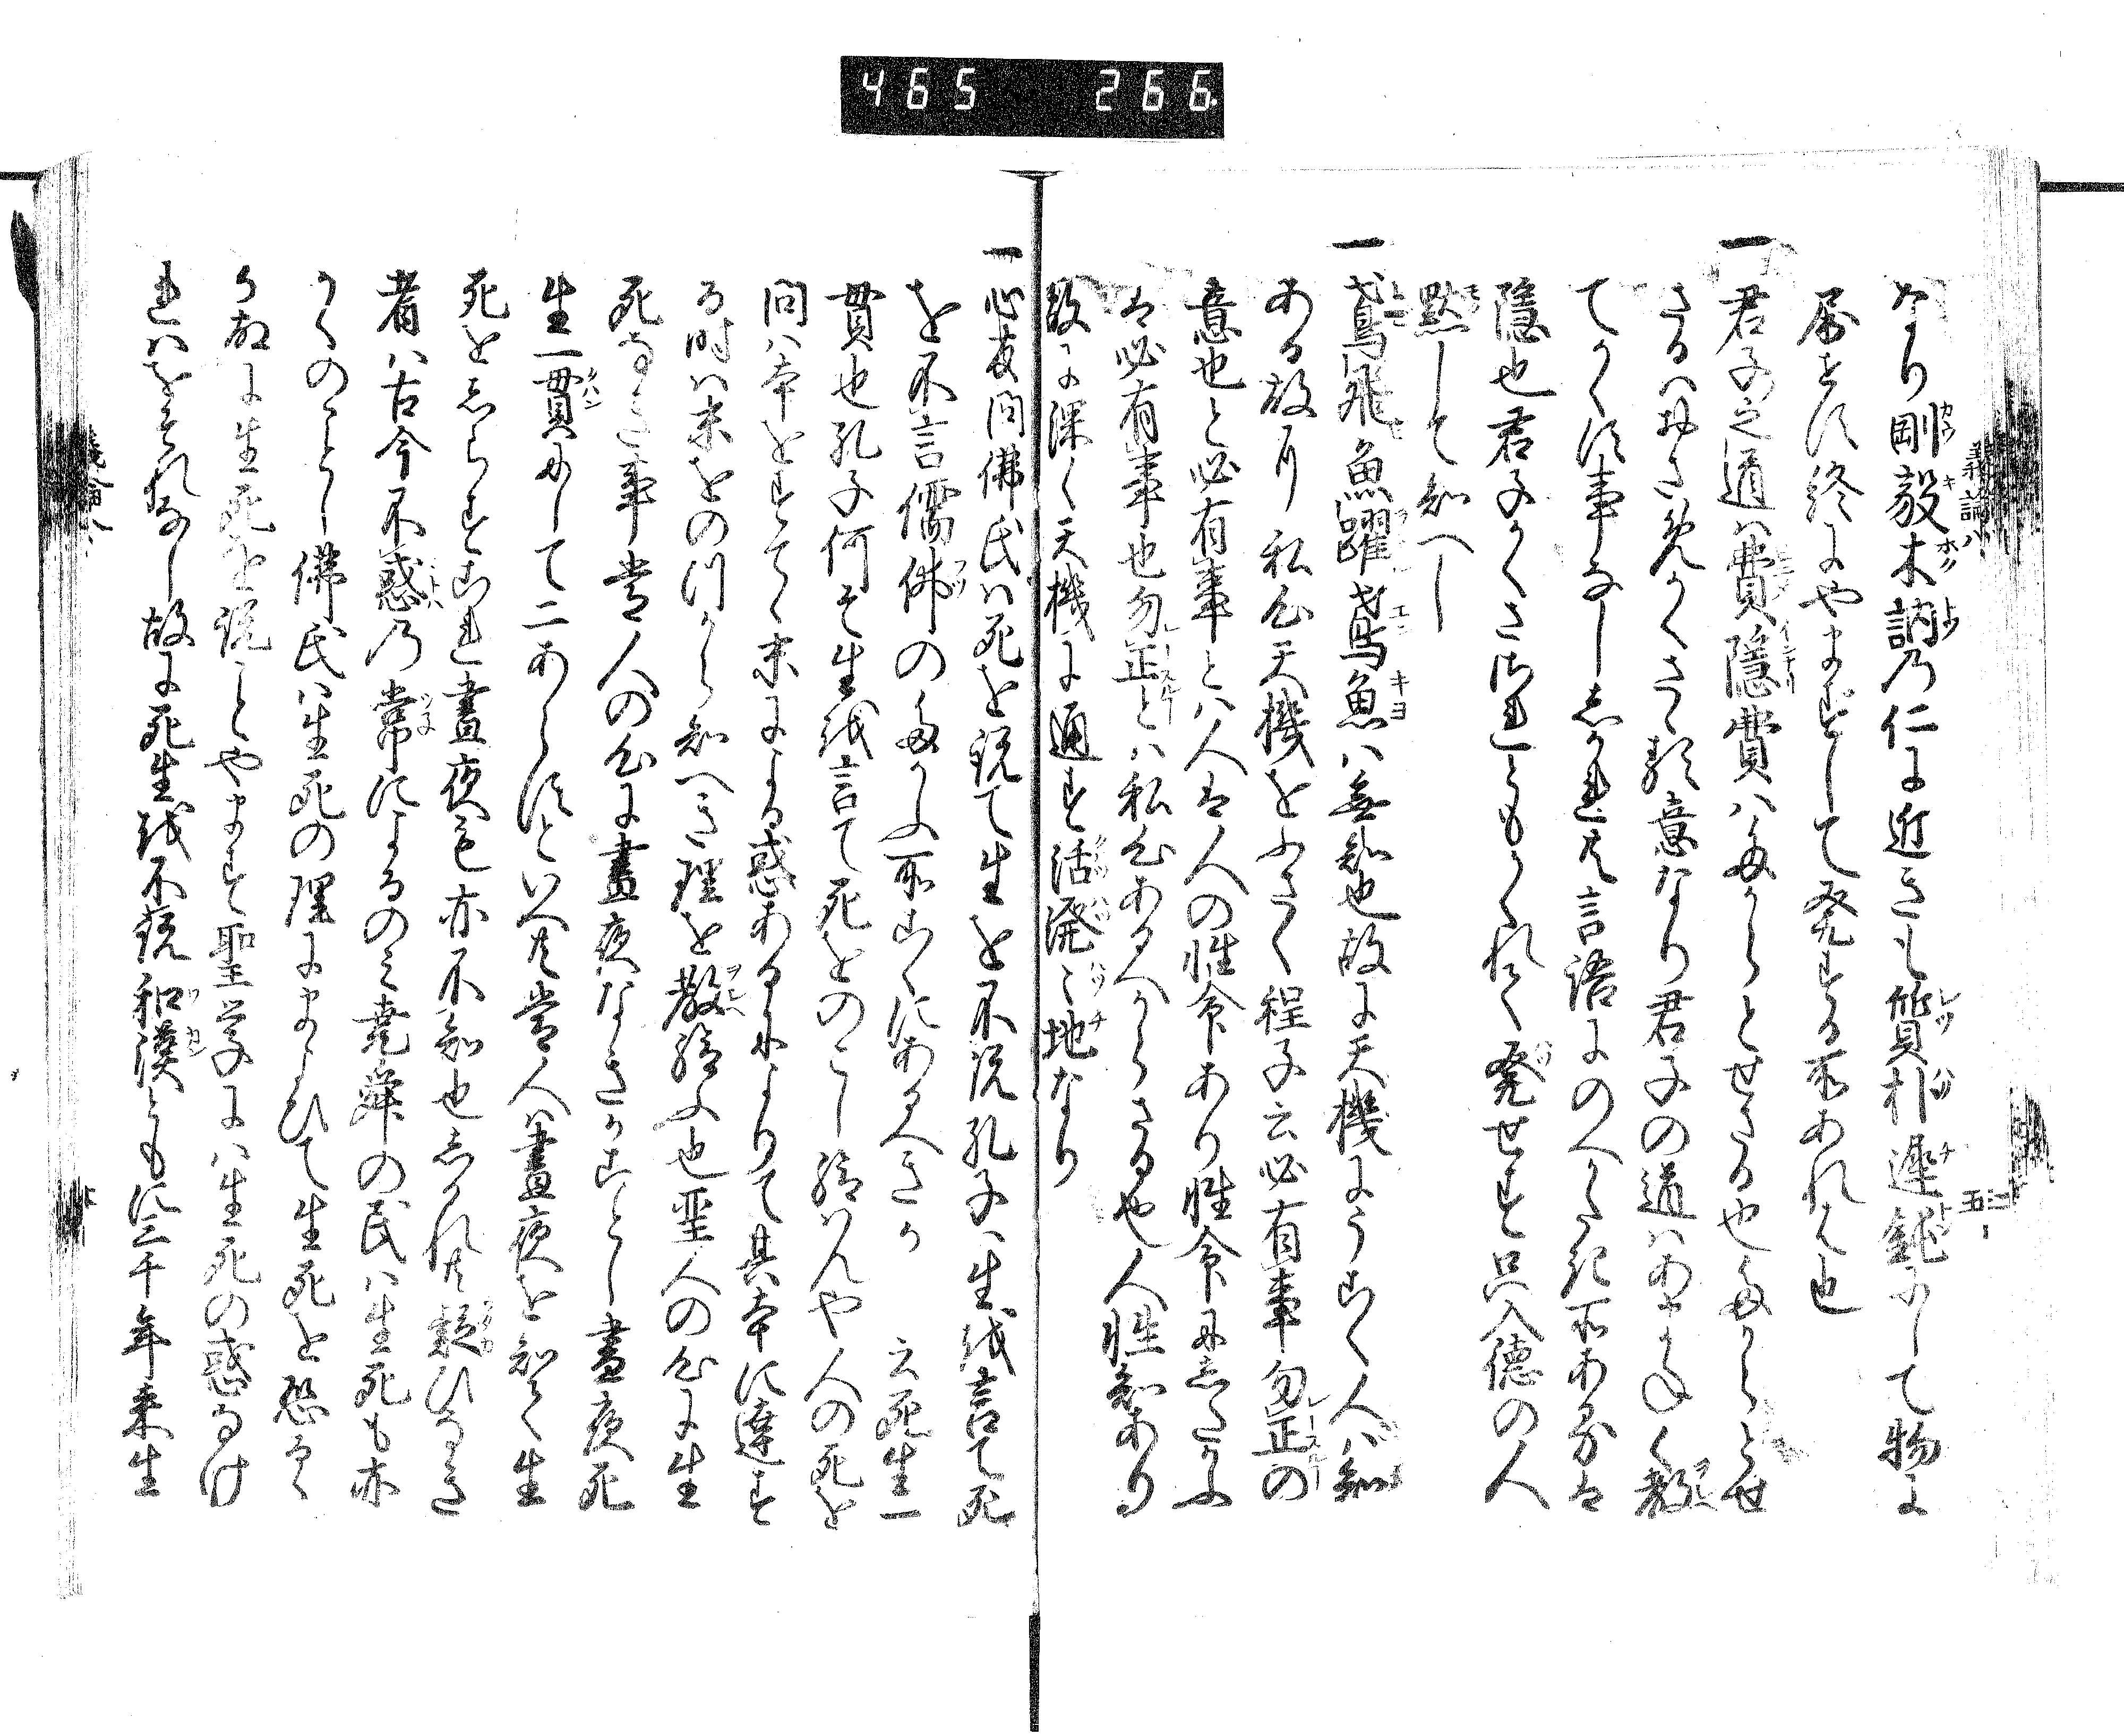 465 266
義論八
五
なり剛毅木訥乃仁に近きも質朴遅鈍にして物に
屈せす終にやますして発する所あれは也
一君子之道ハ費隠費ハあからとせさる也あからとせ
さるハおさめかくさゝる意なり君子の道ハあまねく教
てかくす事なししかれ共言語にのへかたき所あるは
隠也君子かくさゝれともかくれて発せす只入徳の人
黙して知へし
一鳶飛魚躍鳶魚ハ無知也故に天機にうこく人ハ知
ある故に私心天機をふさく程子云必有事勿正の
意也と必有事とハ人は人の性命あり性命にしたかふ
は必有事也勿正とハ私心あるへからさる也人性知あり
故に深く天機に通す活溌々地なり
一心友問佛氏ハ死を説て生を不説孔子ハ生越言て死
を不言儒佛のあらそふ所こゝにあるへきか 云死生一
貫也孔子何そ生越言て死をのこし給ハんや人の死を
問ハ本をすてゝ末による惑あるによりて其本に達す
る時ハ末をのつから知へき理を教給ふ也聖人の心に生
死なき事常人の心に晝夜なきかことし晝夜死
生一貫にして二あらすといへ共常人ハ晝夜を知て生
死をしらすこれ晝夜も亦不知也しかれ共疑ひなき
者ハ古今不惑乃常によるのミ堯舜の民ハ生死も亦
かくのことし佛氏ハ生死の理にまよひて生死を恐るゝ
か故に生死を説ことやます聖学にハ生死の惑なけ
れハをそれなし故に死生越不説和漢ともに三千年来生